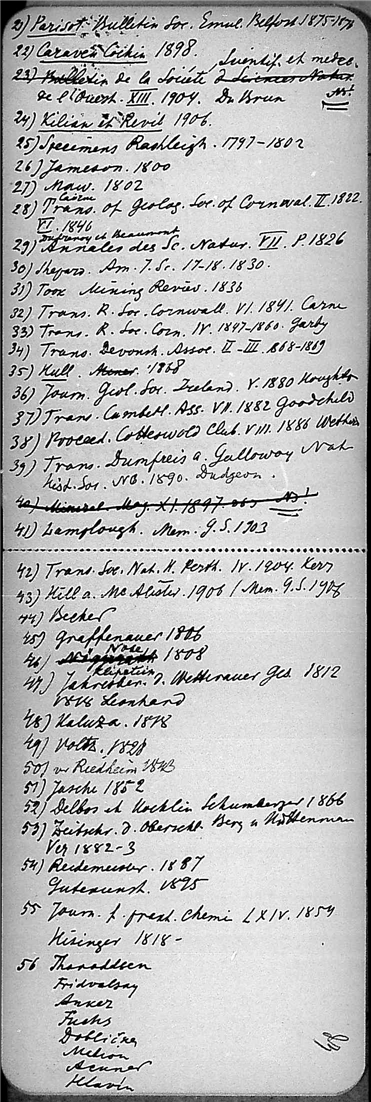 21) Parisot. Bulletin Soc. Emul. Belfort 1875-1878
22) Caraven Cachin 1898.
Scientif. et medec.
23) Bulletin de la Société d. Sciences Natur.
de l'Ouest. XIII. 1904. Du Brun No!
24) Kilian et Revil 1906.
25) Specimens Rashleigh. 1797-1802
26) Jameson. 1800
27) Maw. 1802
Carne
28) Trans. of Geolog. Soc. of Cornwal. II. 1822.
VI. 1846
Dufrenoy et Beaumont
29) Annales des Sc. Natur. VII. P. 1826
30) Shepard. Am. J. Sc. 17-18. 1830.
31) Mining Review. 1836
32) Trans. R. Soc. Cornwall. VI. 1841. Carne
33) Trans. R. Soc. Corn. IV. 1847-1860. Garby
34) Trans. Devonsh. Assoc. II-III. 1868-1869
35) Hull. 1868
36) Journ. Geol. Soc. Ireland. V. 1880 Houghton
37) Trans. Cumberl. Ass. VII. 1882 Goodchild
38) Proceed. Cotteswold Club VIII. 1886
39) Trans. Dumfreis a. Galloway Nat
Hist. Soc. N6. 1890. Dudgeon.
40) Mineral. Mag. XI. 1897. No!
41) Lamplough. Mem. G.S. 1903
42) Trans. Soc. Nat. H. Perth. IV. 1904. Kerr
43) Hill a. Mc Alister. 1906 (Mem. G.S. 1906
44) Becher
45) Graffenauer 1806
Nose
46) 1808
Klipstein
47) Jahresber. d. Wetterauer Ges. 1812
1818 Leonhard
48) Kaluza. 1818
49) Voltz. 1828
50) v. Riedheim 1843
51) Jasche 1852
52) Delbos et Koechlin Schumberger 1866
53) Zeitschr. d. Oberschl. Berg u Hüttenman
Ver 1882-3
54) Reidemeister. 1887
Gutekunst. 1895
55 Journ. f. prakt. Chemi LXIV. 1854
Hisinger 1818-
56 Thoroddsen
Fridvalsky
Anker
Fuchs
Doblicka
Hlavin
48